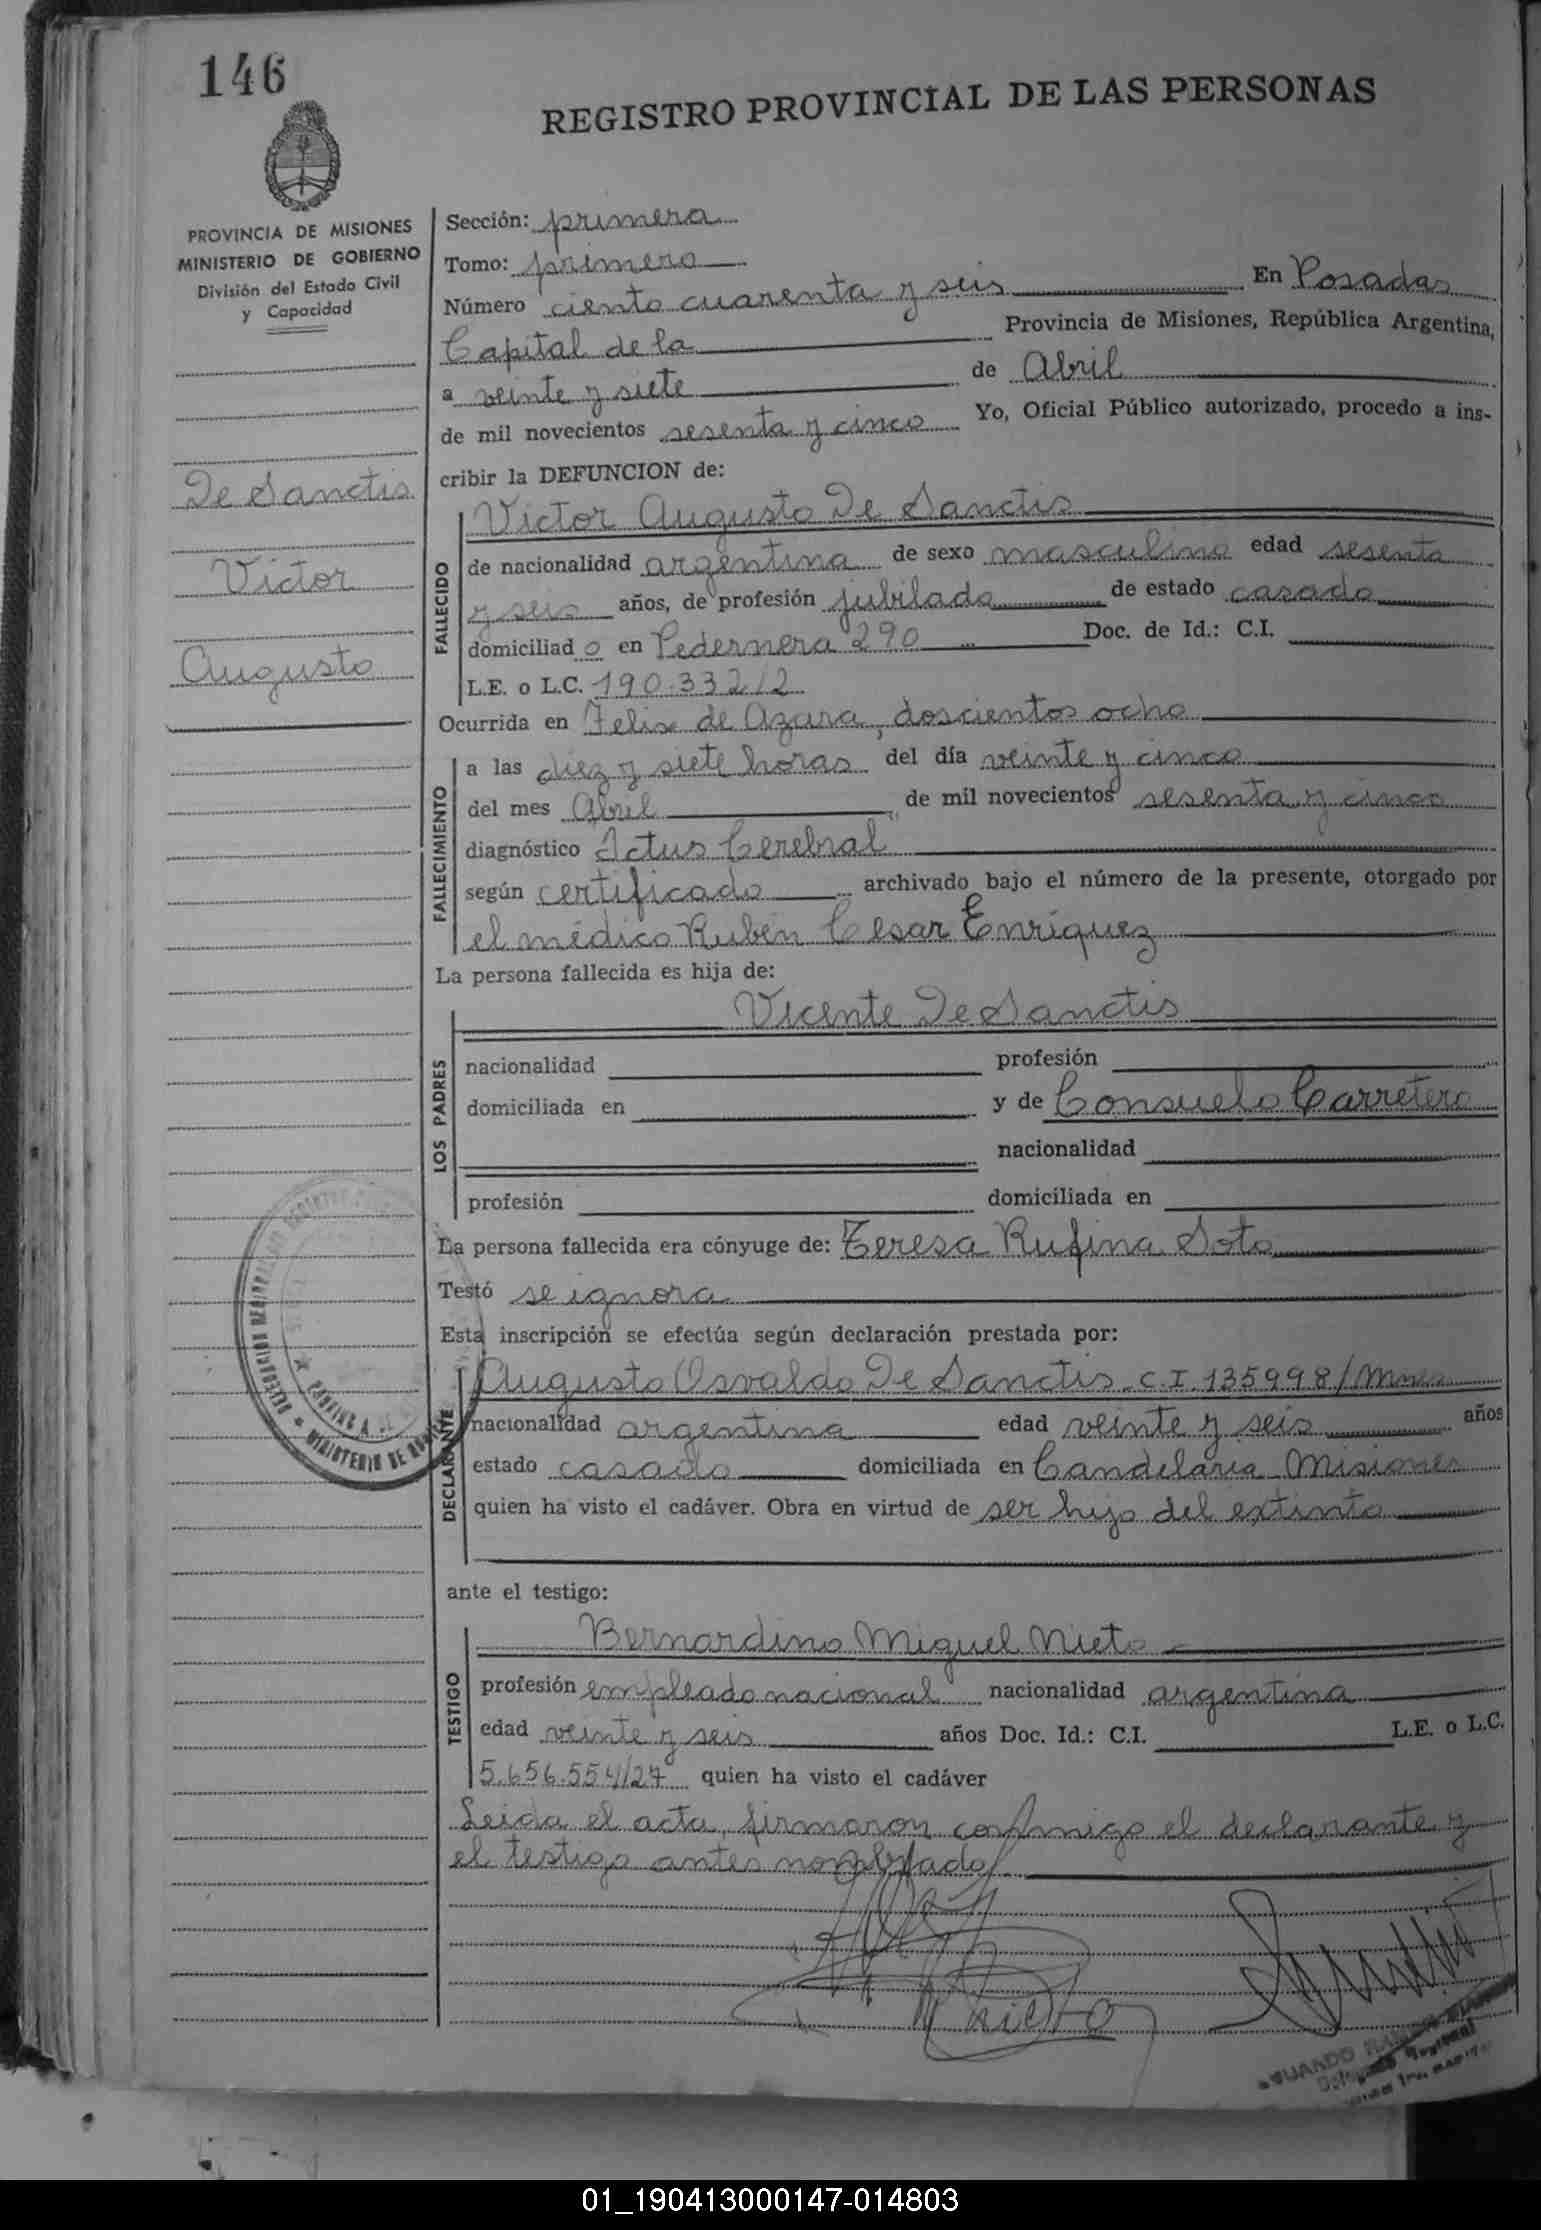 146
REGISTRO PROVINCIAL DE LAS PERSONAS
PROVINCIA DE MISIONES
MINISTERIO DE GOBIERNO
División del Estado Civil
y Capacidad
De Sanctis
Victor
Augusto
Sección: primera
Tomo: primero
Número ciento cuarenta y seis En Posadas
Capital de la Provincia de Misiones, República Argentina,
a veinte y siete de Abril
de mil novecientos sesenta y cinco Yo, Oficial Público autorizado, procedo a ins-
cribir la DEFUNCION de:
FALLECIDO
Victor Augusto De Sanctis
de nacionalidad argentina de sexo masculino edad sesenta
y seis años, de profesión jubilado de estado casado
domiciliado en Pedernera 290 Doc. de Id.: C.I.
L.E. o L.C. 190.332/2
Ocurrida en Felix de Azara, doscientos ocho
FALLECIMIENTO
a las diez y siete horas del día veinte y cinco
del mes Abril de mil novecientos sesenta y cinco
diagnóstico Ictus Cerebral
según certificado archivado bajo el número de la presente, otorgado por
el médico Rubén Cesar Enríquez
La persona fallecida es hija de:
LOS PADRES
Vicente De Sanctis
nacionalidad profesión
domiciliada en y de Consuelo Carretero
nacionalidad
profesión domiciliada en
La persona fallecida era cónyuge de: Teresa Rufina Soto
Testó se ignora
Esta inscripción se efectúa según declaración prestada por:
DECLARANTE
Augusto Osvaldo De Sanctis C.I. 135998/Mnes
nacionalidad argentina edad veinte y seis años
estado casado domiciliada en Candelaria Misiones
quien ha visto el cadáver. Obra en virtud de ser hijo del extinto
ante el testigo:
TESTIGO
Bernardino Miguel Nieto
profesión empleado nacional nacionalidad argentina
edad veinte y seis años Doc. Id.: C.I. L.E. o L.C.
5.656.554/27 quien ha visto el cadáver
Leida el acta, firmaron conmigo el declarante y
el testigo antes nombrado
Nieto
MINISTERIO DE
01_190413000147-014803